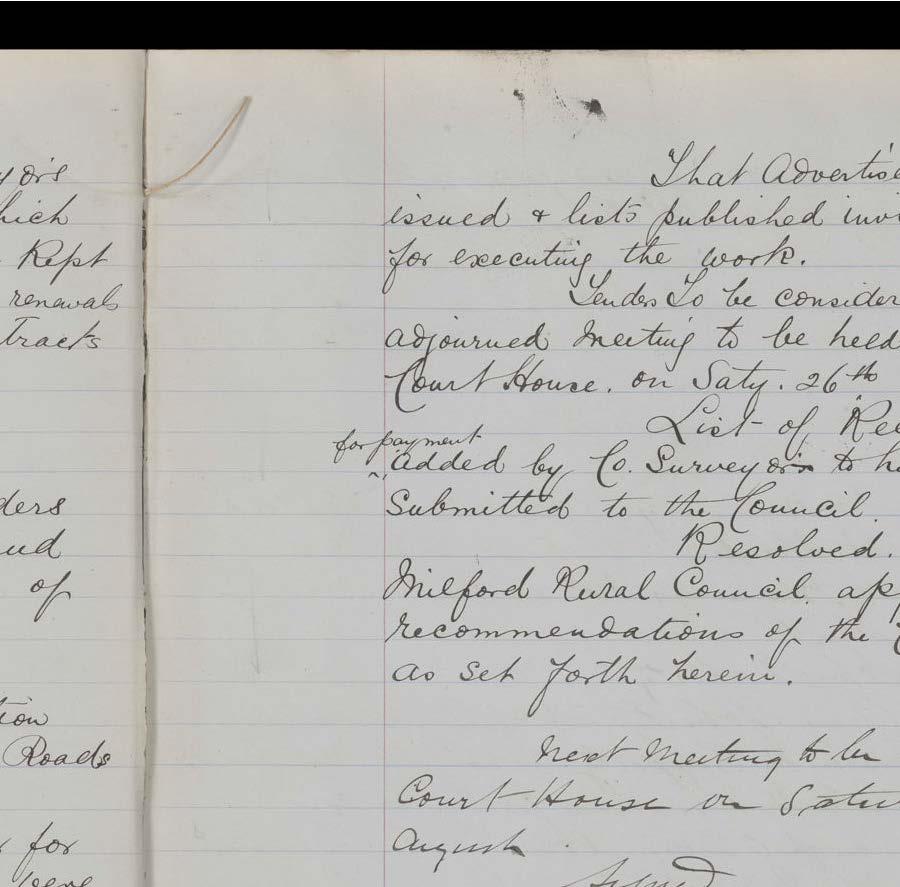 yors
hich
Kept
renewals
tracts
ders
ud
of
tion
Roads
for
were
That Advertise
issued & lists published invi
for executing the work.
Tenders To be consider
adjourned Meeting to be held
Court House. on Saty. 26th
List of Rec
for payment
added by Co. Surveyors to h
Submitted to the Council.
Resolved.
Milford Rural Council. app
recommendations of the C
as set forth herein.
Next Meeting to be
Court House on Satu
August.